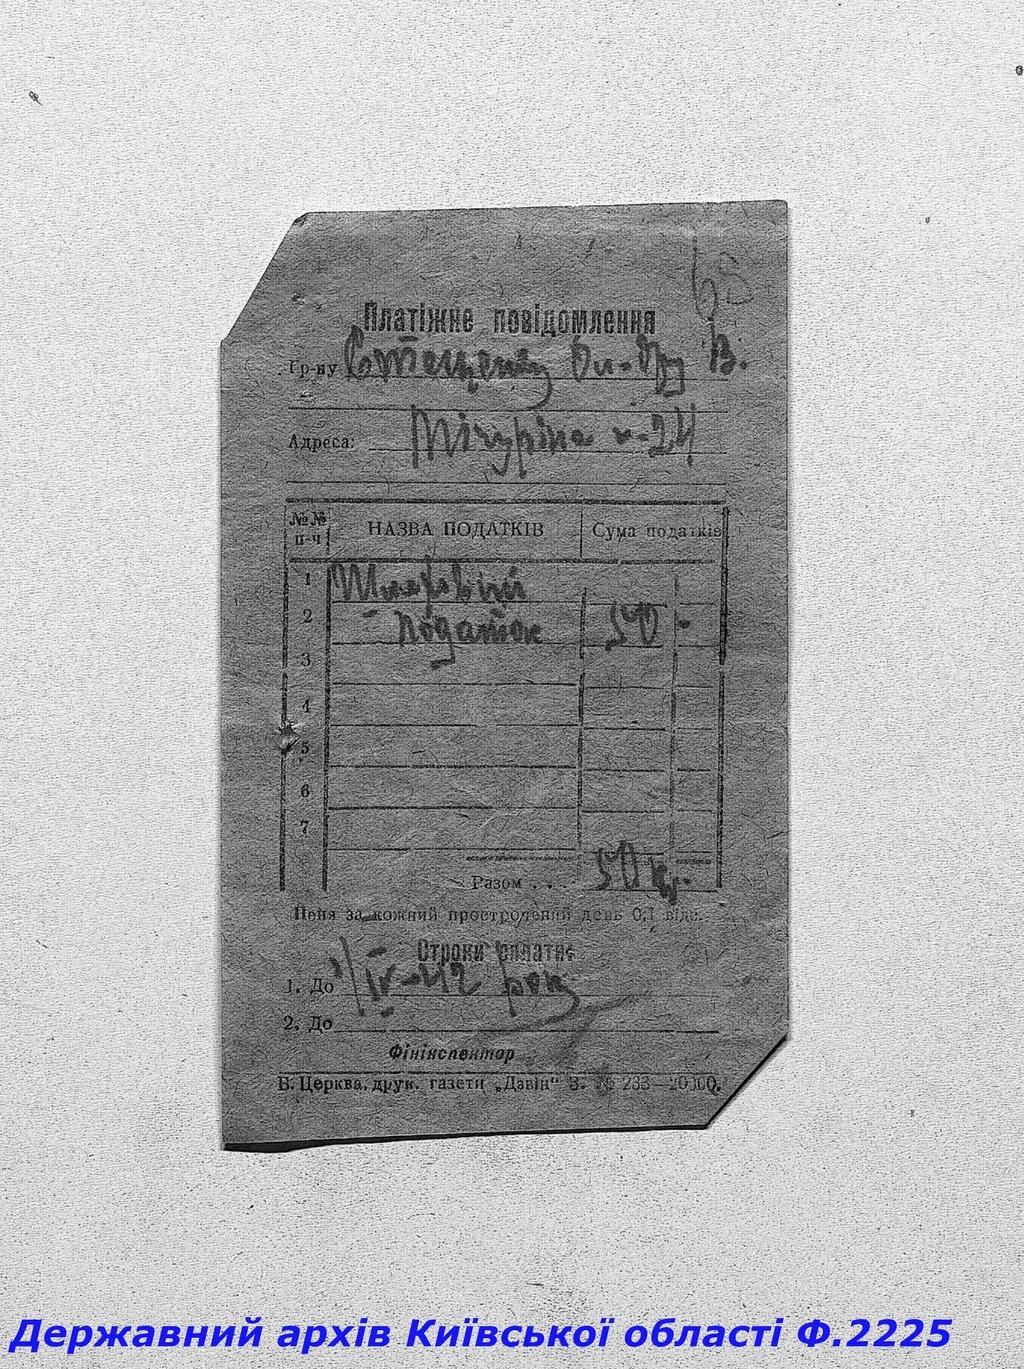 68
Платіжне повідомлення
Гр-ну Стеценку Ол-дру В.
Адреса: Мічуріна 24
№№ п-ч НАЗВА ПОДАТКІВ Сума податків
1
2 податок 50 -
3
4
5
6
7
Разом . . . 50 кр.
Пеня за кожний прострочений день 0,1 відс.
Строки сплати
1. До 1/IV-42 рок
2. До
Фінінспектор
Б. Церква, друк. газети „Дзвін" З. № 233—20000.
Державний архів Київської області Ф.2225